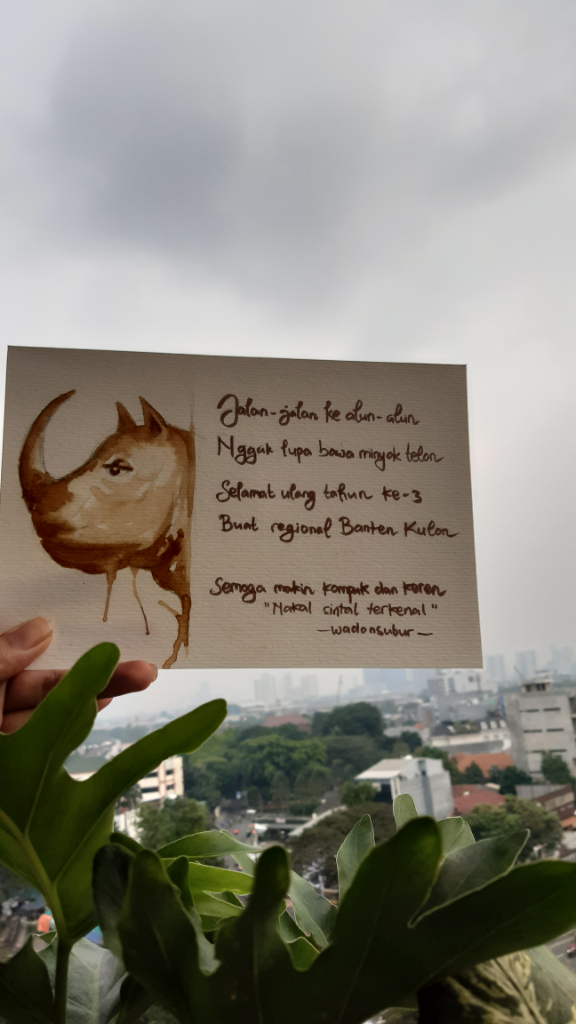 Jalan-jalan ke alun-alun
Nggak lupa bawa minyak telon
Selamat ulang tahun ke-3
Buat regional Banten Kulon
Semoga makin kompak dan keren
"Nakal cintal terkenal"
—wadonsubur—